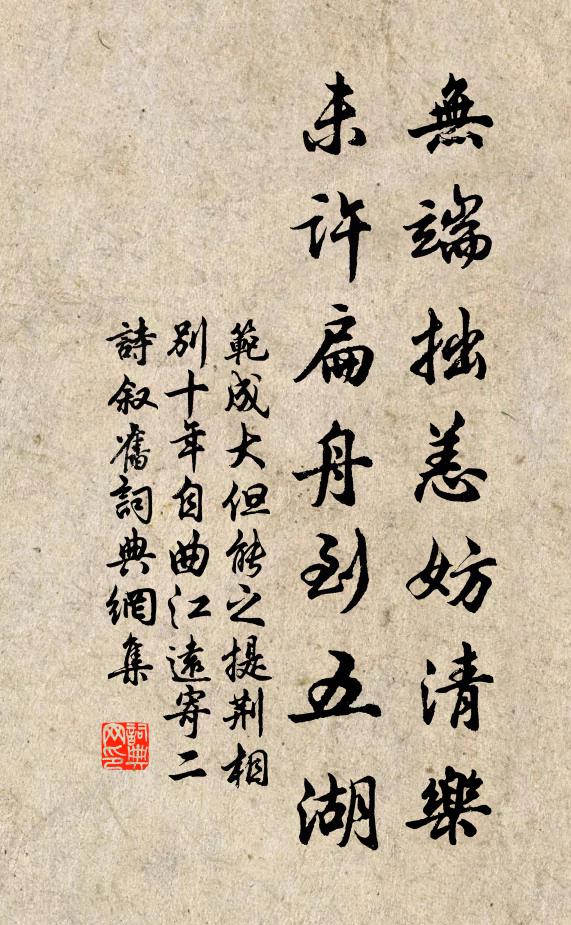 無端拙恙妨清樂
未許扁舟到五湖
範成大但能之提荆相
別十年自曲江遠寄二
詩叙舊詞典網集
詞典網印